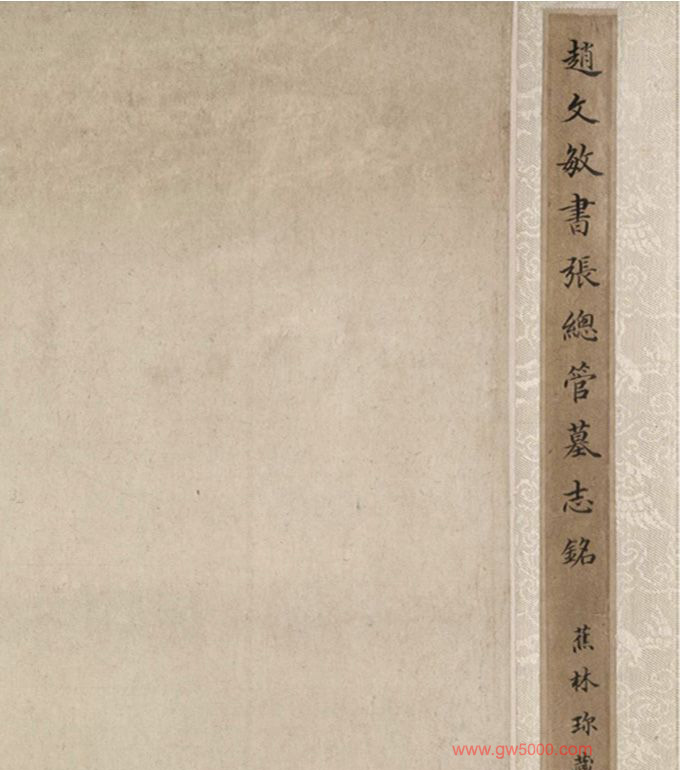 趙文敏書張總管墓志銘 蕉林珎藏
www.gw5000.com